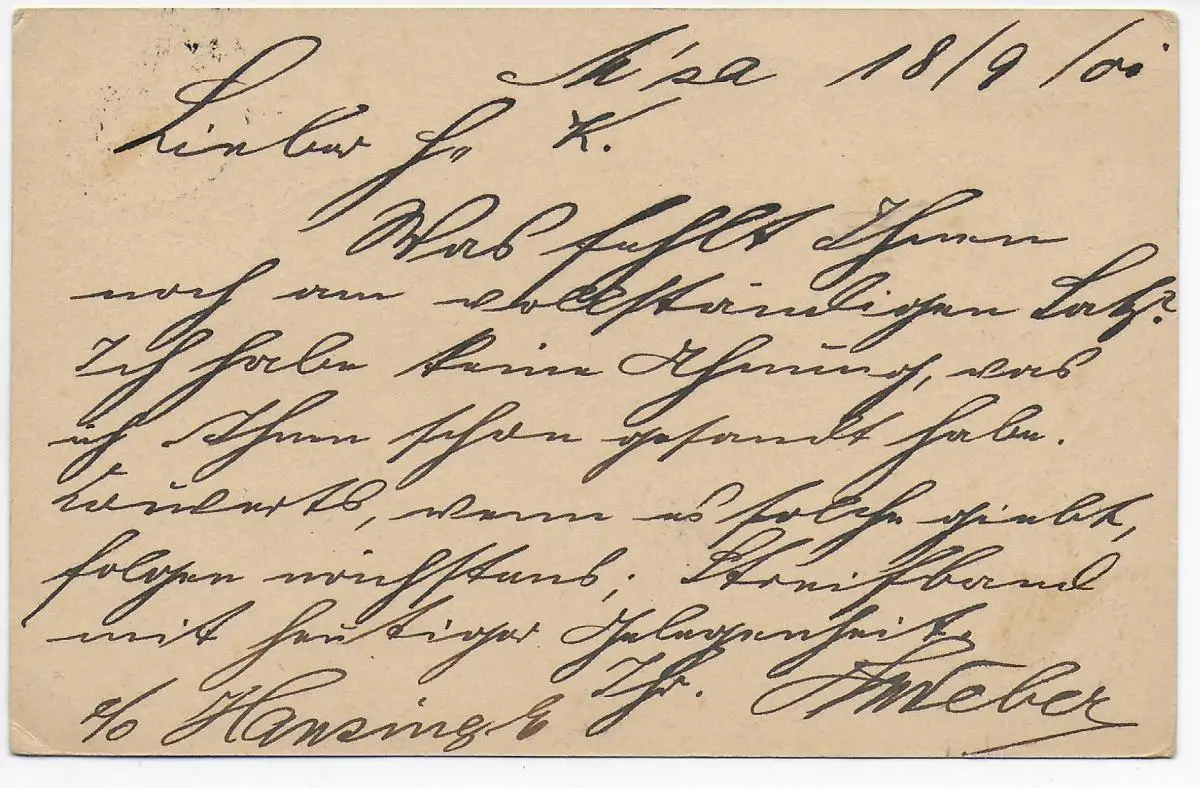 M'sa 18/9/01
Lieber H. K.
Was fehlt Ihnen
noch am vollständigen Satz?
Ich habe keine Ahnung, was
ich Ihnen schon gesandt habe.
Couverts, wenn es solche giebt,
folgen nächstens; Streifband
mit heutiger Gelegenheit.
Ihr. Weber
c/o Hansing &